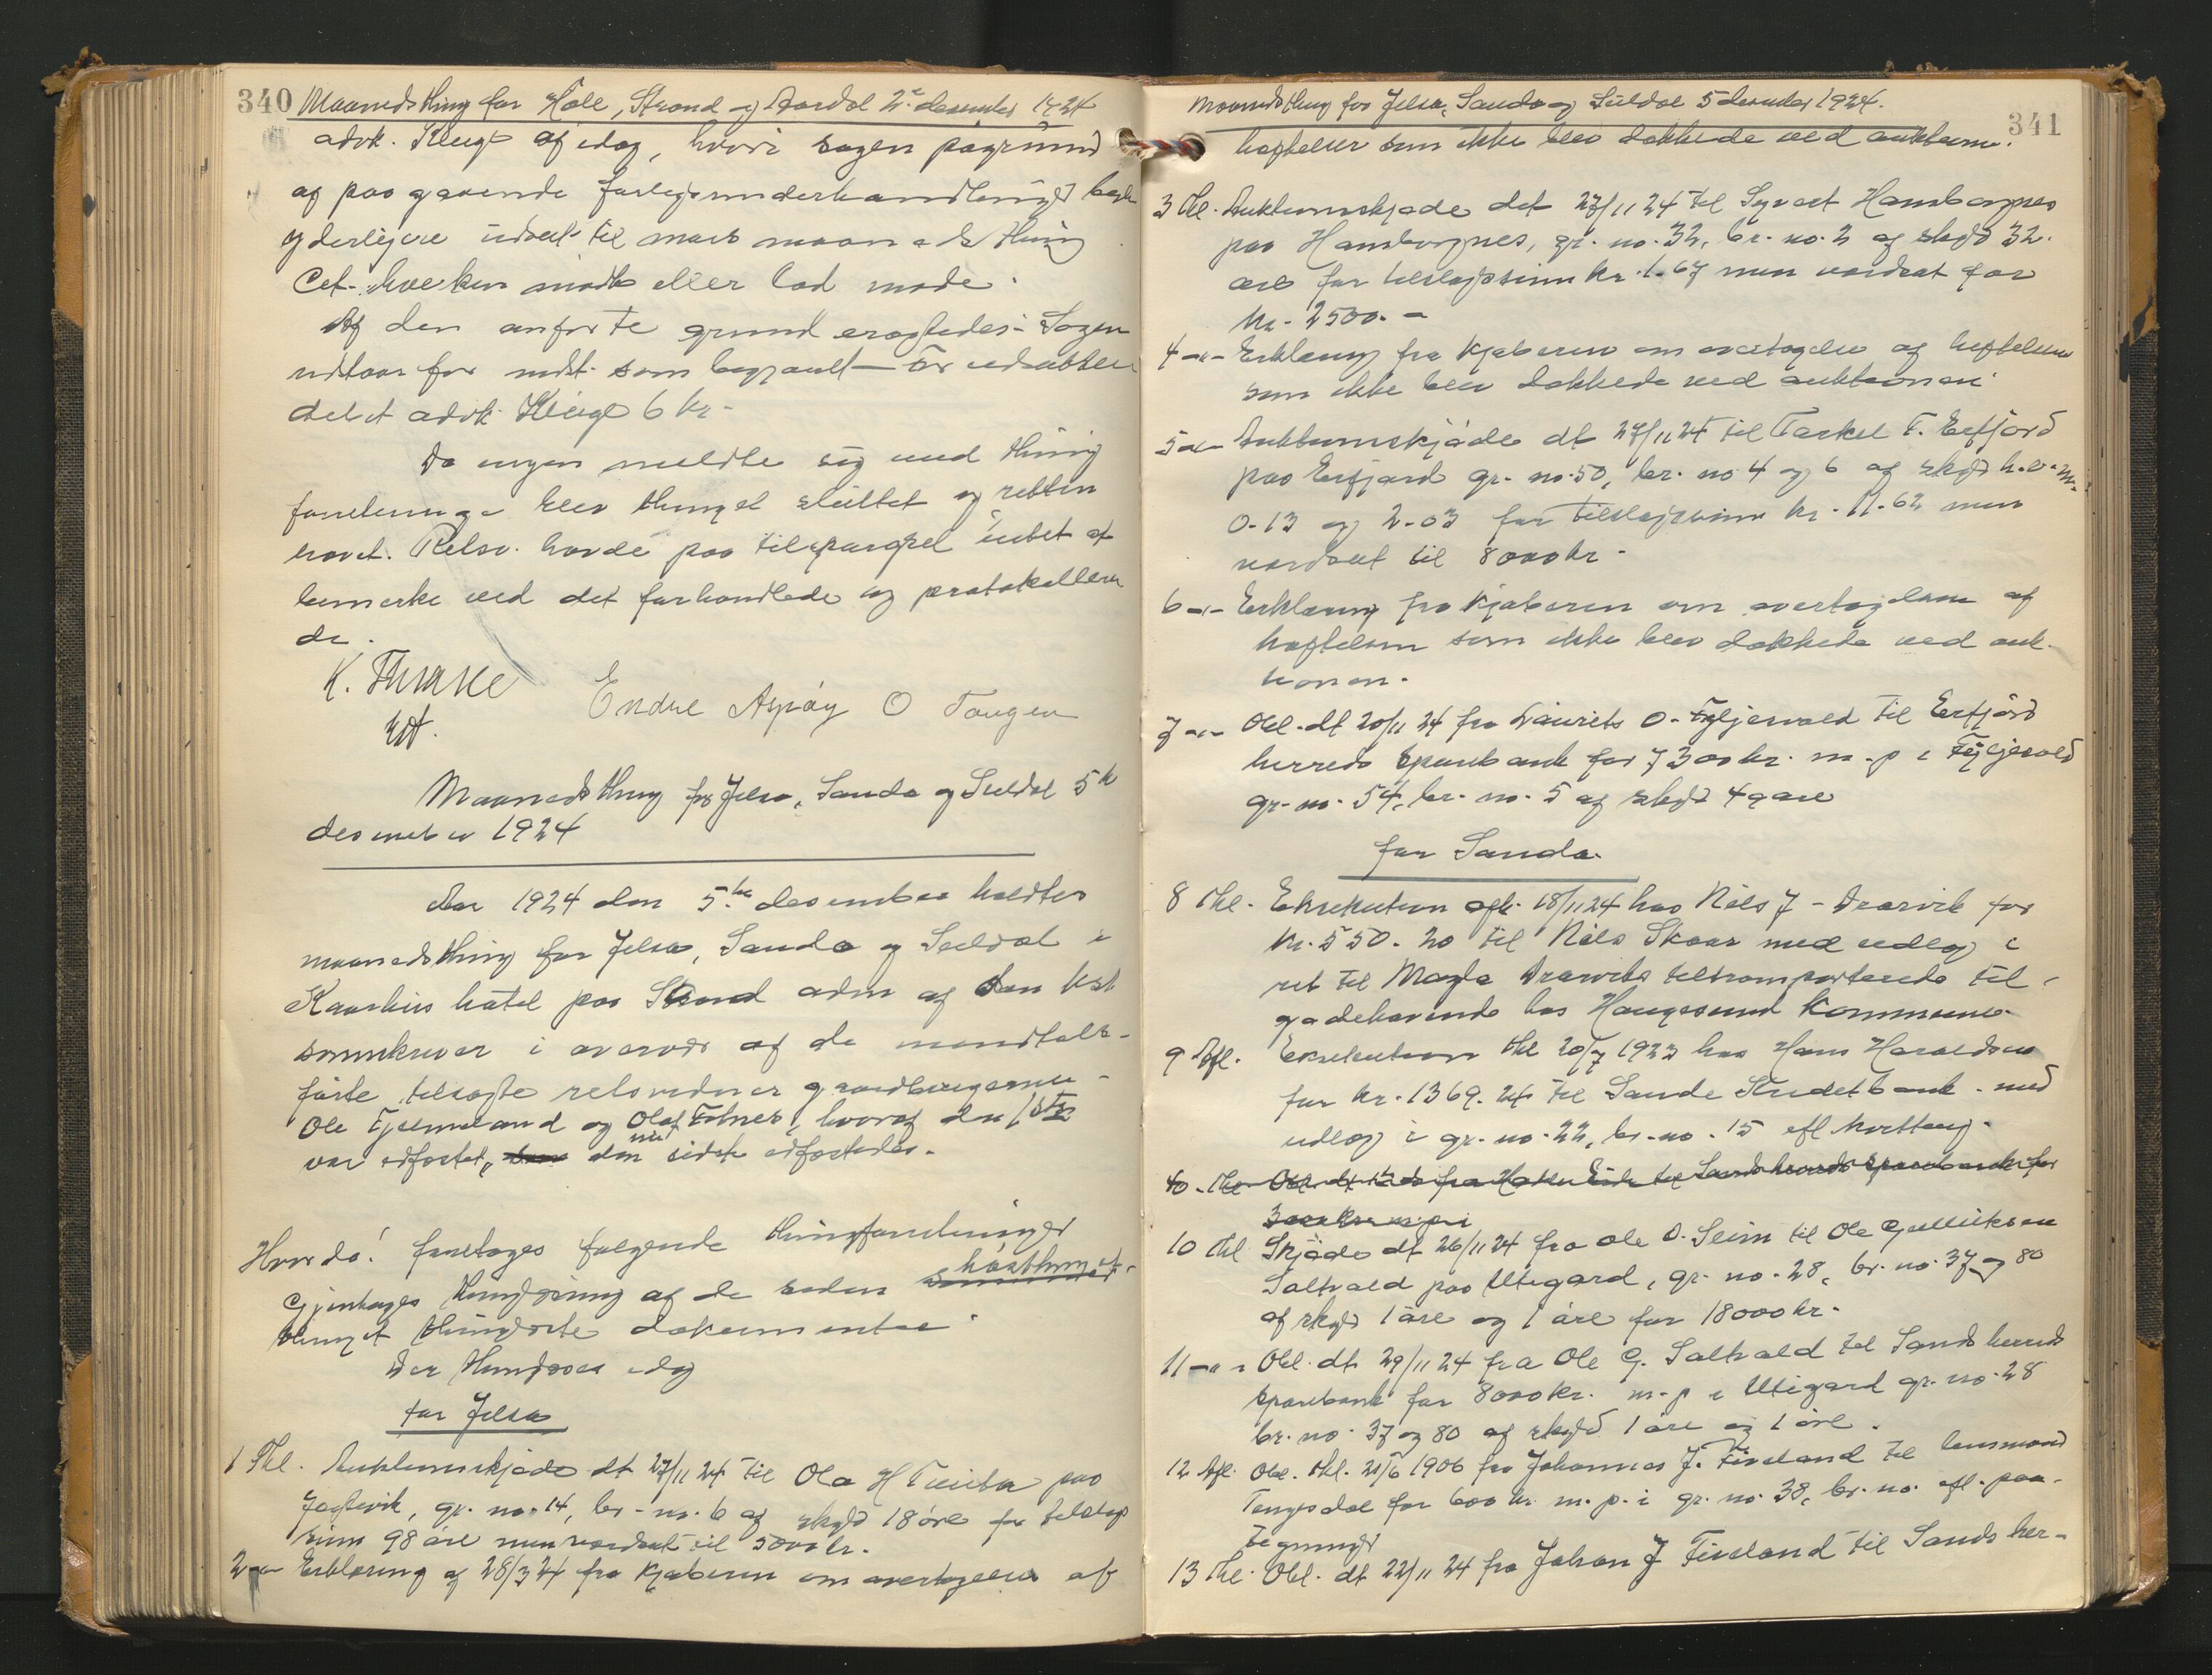 340 Maanedsthing for Höle, Strand og Aardal 2. desember 1924
advk. Kluge af idag, hvori sagen pågrund
af paagaaende forligsunderhandlinger beg
yderligere udsat til mars maanedsthing
Cet. hverken mödte eller lod möde.
Af den anförte grund eragtedes: Sagen
udstaar for mdst. som begjært – For udsættel
det et advk. Kluge 6 kr.
Da ingen meldte sig med thing
forretninger blev thinget sluttet og retten
hævet. Retsv. havde paa tilspørgsel intet at
bemerke ved det forhandlede og protokollere
de.
K. Thrane
Endre Aspöy O Tangen
Maanedsthing for Jelsa, Sauda og Suldal 5te
desember 1924
Aar 1924 den 5te desember holdtes
maanedsthing for Jelsa, Sauda og Suldal i
Kaarhus hotel paa Sand adm af den kst
sorenskriver i overvær af de mandtals-
förte tilsagte retsvidner gaardbrugerne
Ole Fjelmeland og Olaf Fatnes, hvoraf den 1ste
var edfæstet, den sidste edfæstedes.
Hvorda! foretoges følgende thingforretninger
Gjentages thinglæsning af de siden høstthinget
thinget thinglæste dokumenter
Der thinglæses idag
for Jelsa
1 Thl. Auktionsskjøde dt 27/11 24 til Ola H Tveita paa
Jøsevik, gr. no. 14, br. no. 6 af skyld 18 øre for tilslags
sum 98 øre men værdsat til 5000 kr.
2 -"- Erklæring af 28/3 24 fra kjøberen om overtagelse af
Maanedsthing for Jelsa, Sauda og Suldal 5 desember 1924. 341
hæftelser som ikke blev dækkede ved auktionen.
3 Thl. Auktionsskjøde dt 27/11 24 til Sjvert Hamborgnes
paa Hamborgnes, gr. no. 32, br. no. 2 af skyld 32.
øre for tilslagssum kr. 1.67 men værdsat for
kr. 2500.-
4 -"- Erklæring fra kjøberen om overtagelse af heftelsene
som ikke blev dækkede ved auktionen
5 -"- Auktionsskjøde dt 27/11 24 til Torkel T. Erfjord
paa Erfjord gr. no. 50, br. no 4 og 6 af skyld h.v. m.
0.13 og 2.03 for tilslagssum kr. 11.62 men
værdsat til 8000 kr.
6 -"- Erklæring fra kjøberen om overtagelsen af
hæftelser som ikke blev dækkede ved auk
tionen.
7 -"- Obl. dt 20/11 24 fra Laurits O. Fylgjesvold til Erfjord
herreds sparebank for 7300 kr. m. p i Fylgjesvold
gr. no. 54, br. no. 5 af skyld 49 øre
for Sauda
8 Thl. Eksekution afh. 18/11 24 hos Nils J. Drarvik for
kr. 550.20 til Nils Skaar med udlæg i
ret til Magla Drarviks tiltransporterede til-
godehavende hos Haugesund Kommune.
9 Afl. Eksekution thl 20/7 1923 hos Hans Haraldsen
for kr. 1369.24 til Sauda Kreditbank med
udlæg i gr. no. 22, br. no. 15 efl. kvittering.
10. Thl Obl. dt fra til Sands herreds sparebank for
3000 kr. m. p. i
10 Thl Skjøde dt 26/11 24 fra Ole O. Seim til Ole Gulliksen
Saltvold paa Utigard, gr. no. 28, br. no. 37 og 80
af skyld 1 øre og 1 øre for 18000 kr.
11 -"- Obl. dt 29/11 24 fra Ole G. Saltvold til Sands herreds
sparebank for 8000 kr. m. p i Utigard gr. no. 28
br. no. 37 og 80 af skyld 1 øre og 1 øre.
12 Afl. Obl. thl. 21/6 1906 fra Johannes J. Fiveland til lensmand
Tengesdal for 600 kr. m. p. i gr. no. 38, br. no. efl. paa-
tegning
13 Thl. Obl. dt 22/11 24 fra Johan J Fiveland til Sands her-